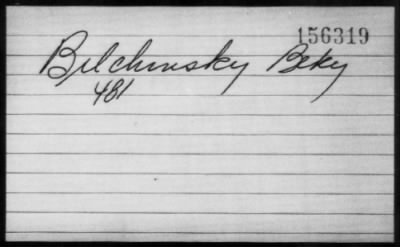 156319
Bilchinsky Beky
481